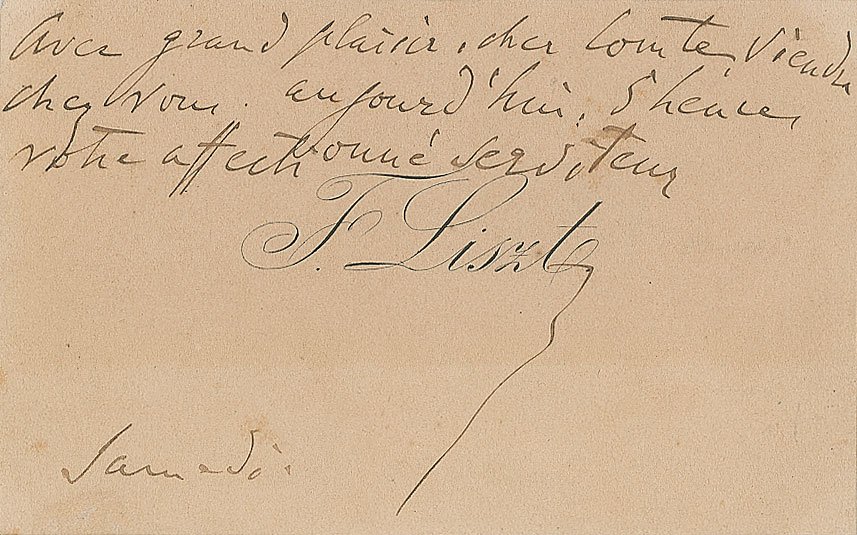 Avec grand plaisir, cher Comte, viendra
chez vous aujourd'hui, 5 heures,
votre affectionné serviteur
F. Liszt
Samedi.